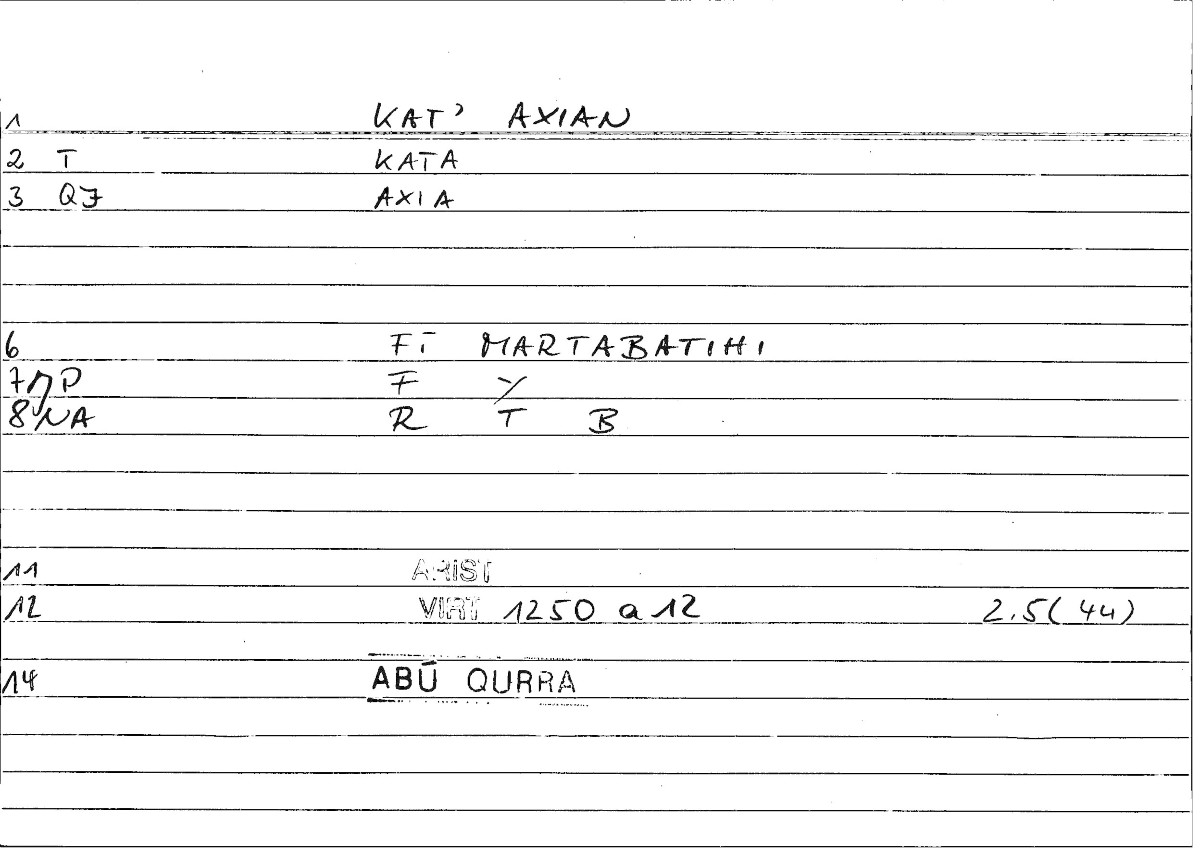 1 KAT' AXIAN
2 T KATA
3 QJ AXIA
6 FĪ MARTABATIHI
7 P F Y
8 NA R T B
11 ARIST
12 VIRT 1250 a 12 2.5(44)
14 ABŪ QURRA